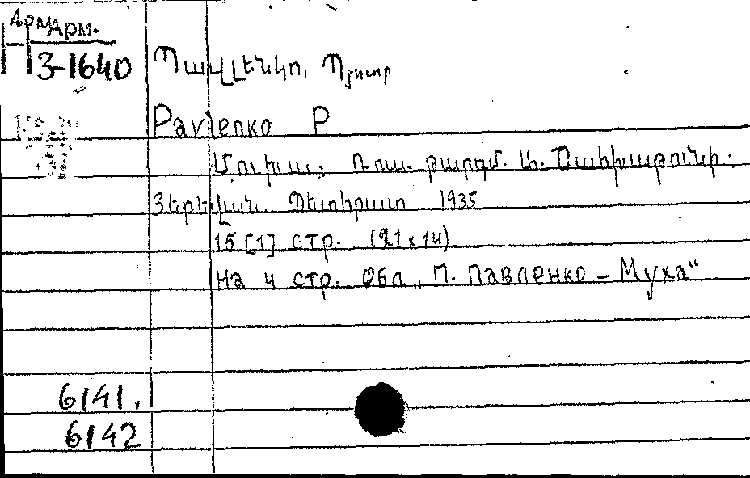 Арм Арм.
3-1640
Պավլենկո, Պյոտր
Pavlenko P
Մուխա: Ռուս. թարգմ.
Յերեվան. Պետհրատ 1935
15 [1] стр. (21 x 14)
На 4 стр. обл. "П. Павленко – Муха"
6141.
6142